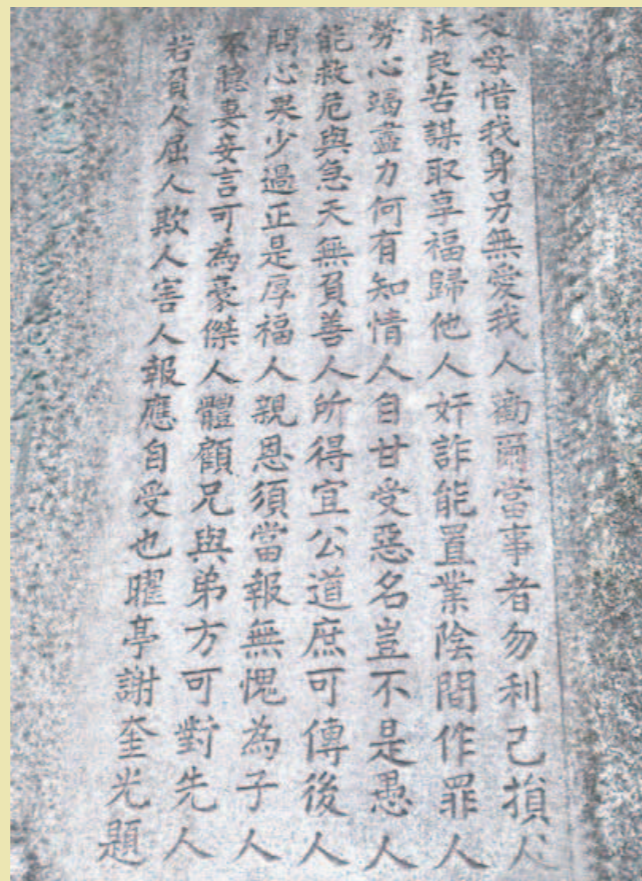 父母惜我身另無愛我人勸爾當事者勿利己損人
昧良苦謀取享福歸他人奸詐能置業陰間作罪人
勞心竭盡力何有知情人自甘受惡名豈不是愚人
能救危與急天無負善人所得宜公道庶可傳後人
問心果少過正是厚福人親恩須當報無愧為子人
不聽妻妾言可為豪傑人體顧兄與弟方可對先人
若負人屈人欺人害人報應自受也曜亭謝奎光題